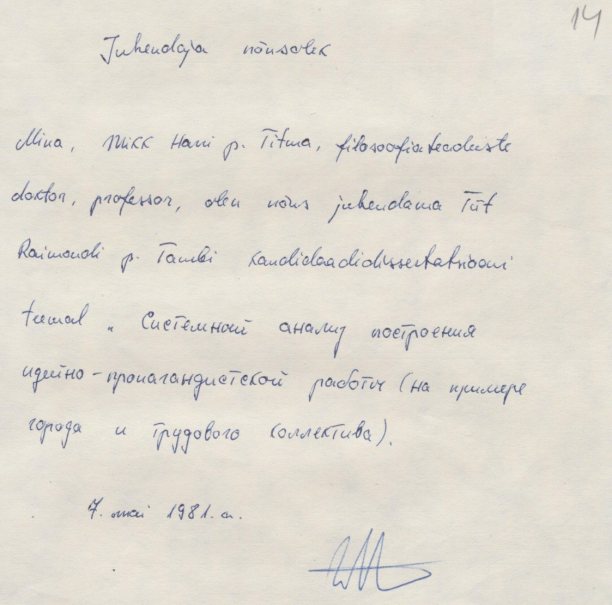 14
Juhendaja nõusolek
Mina, Mikk Harri p. Titma, filosoofiateaduste
doktor, professor, olen nõus juhendama Tiit
Raimondi p. Tambi kandidaadidissertatsiooni
teemal „Системный анализ построения
идейно-пропагандистской работы (на примере
города и трудового коллектива).
7. mai 1981. a.